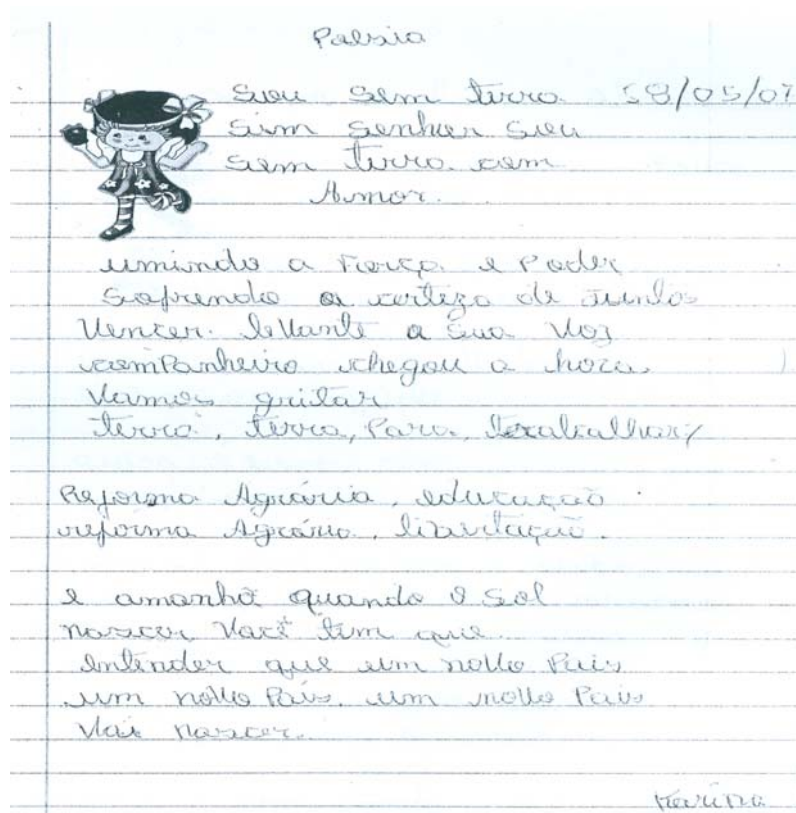 Poesia
Sou sem terra 58/05/07
Sim senhor sou
sem terra com
Amor.
umindo a Força e Poder
Soprendo a certeza de Juntos
Vencer. leVante a sua Voz
comPanheiro chegou a hora
Vamos gritar
terra, terra, Para, trabalhar
Reforma Agrária, educação.
reforma Agrária, libertação.
e amanhã quando o Sol
nascer Você tem que
entender que um novo País
um novo País. um novo País
Vai nascer.
Karina